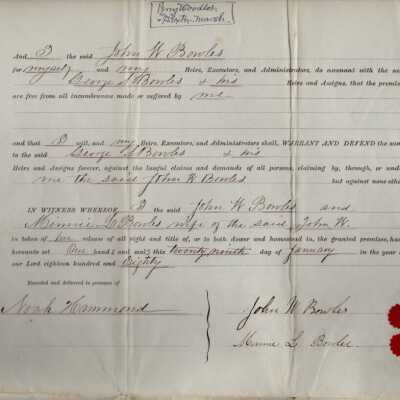 Perry Woodlot
And I the said John W Bowles
for myself and my Heirs, Executors, and Administrators, do covenant with the said
George S Bowles & his Heirs and Assigns, that the premises
are free from all incumbrances made or suffered by me
and that I will, and my Heirs, Executors, and Administrators shall, WARRANT AND DEFEND the same
to the said George S Bowles & his
Heirs and Assigns forever, against the lawful claims and demands of all persons, claiming by, through, or under
me the said John W Bowles but against none other
IN WITNESS WHEREOF I the said John W Bowles and
Minnie L Bowles wife of the said John W.
in token of her release of all right and title of, or to both dower and homestead in, the granted premises, have
hereunto set our hands and seals this twenty ninth day of January in the year of
our Lord eighteen hundred and Eighty
Executed and delivered in presence of
Noah Hammond
John W Bowles
Minnie L Bowles